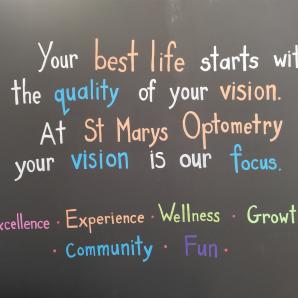 Your best life starts wit
the quality of your vision.
At St Marys Optometry
your vision is our focus.
xcellence · Experience · Wellness · Growt
· Community · Fun ·